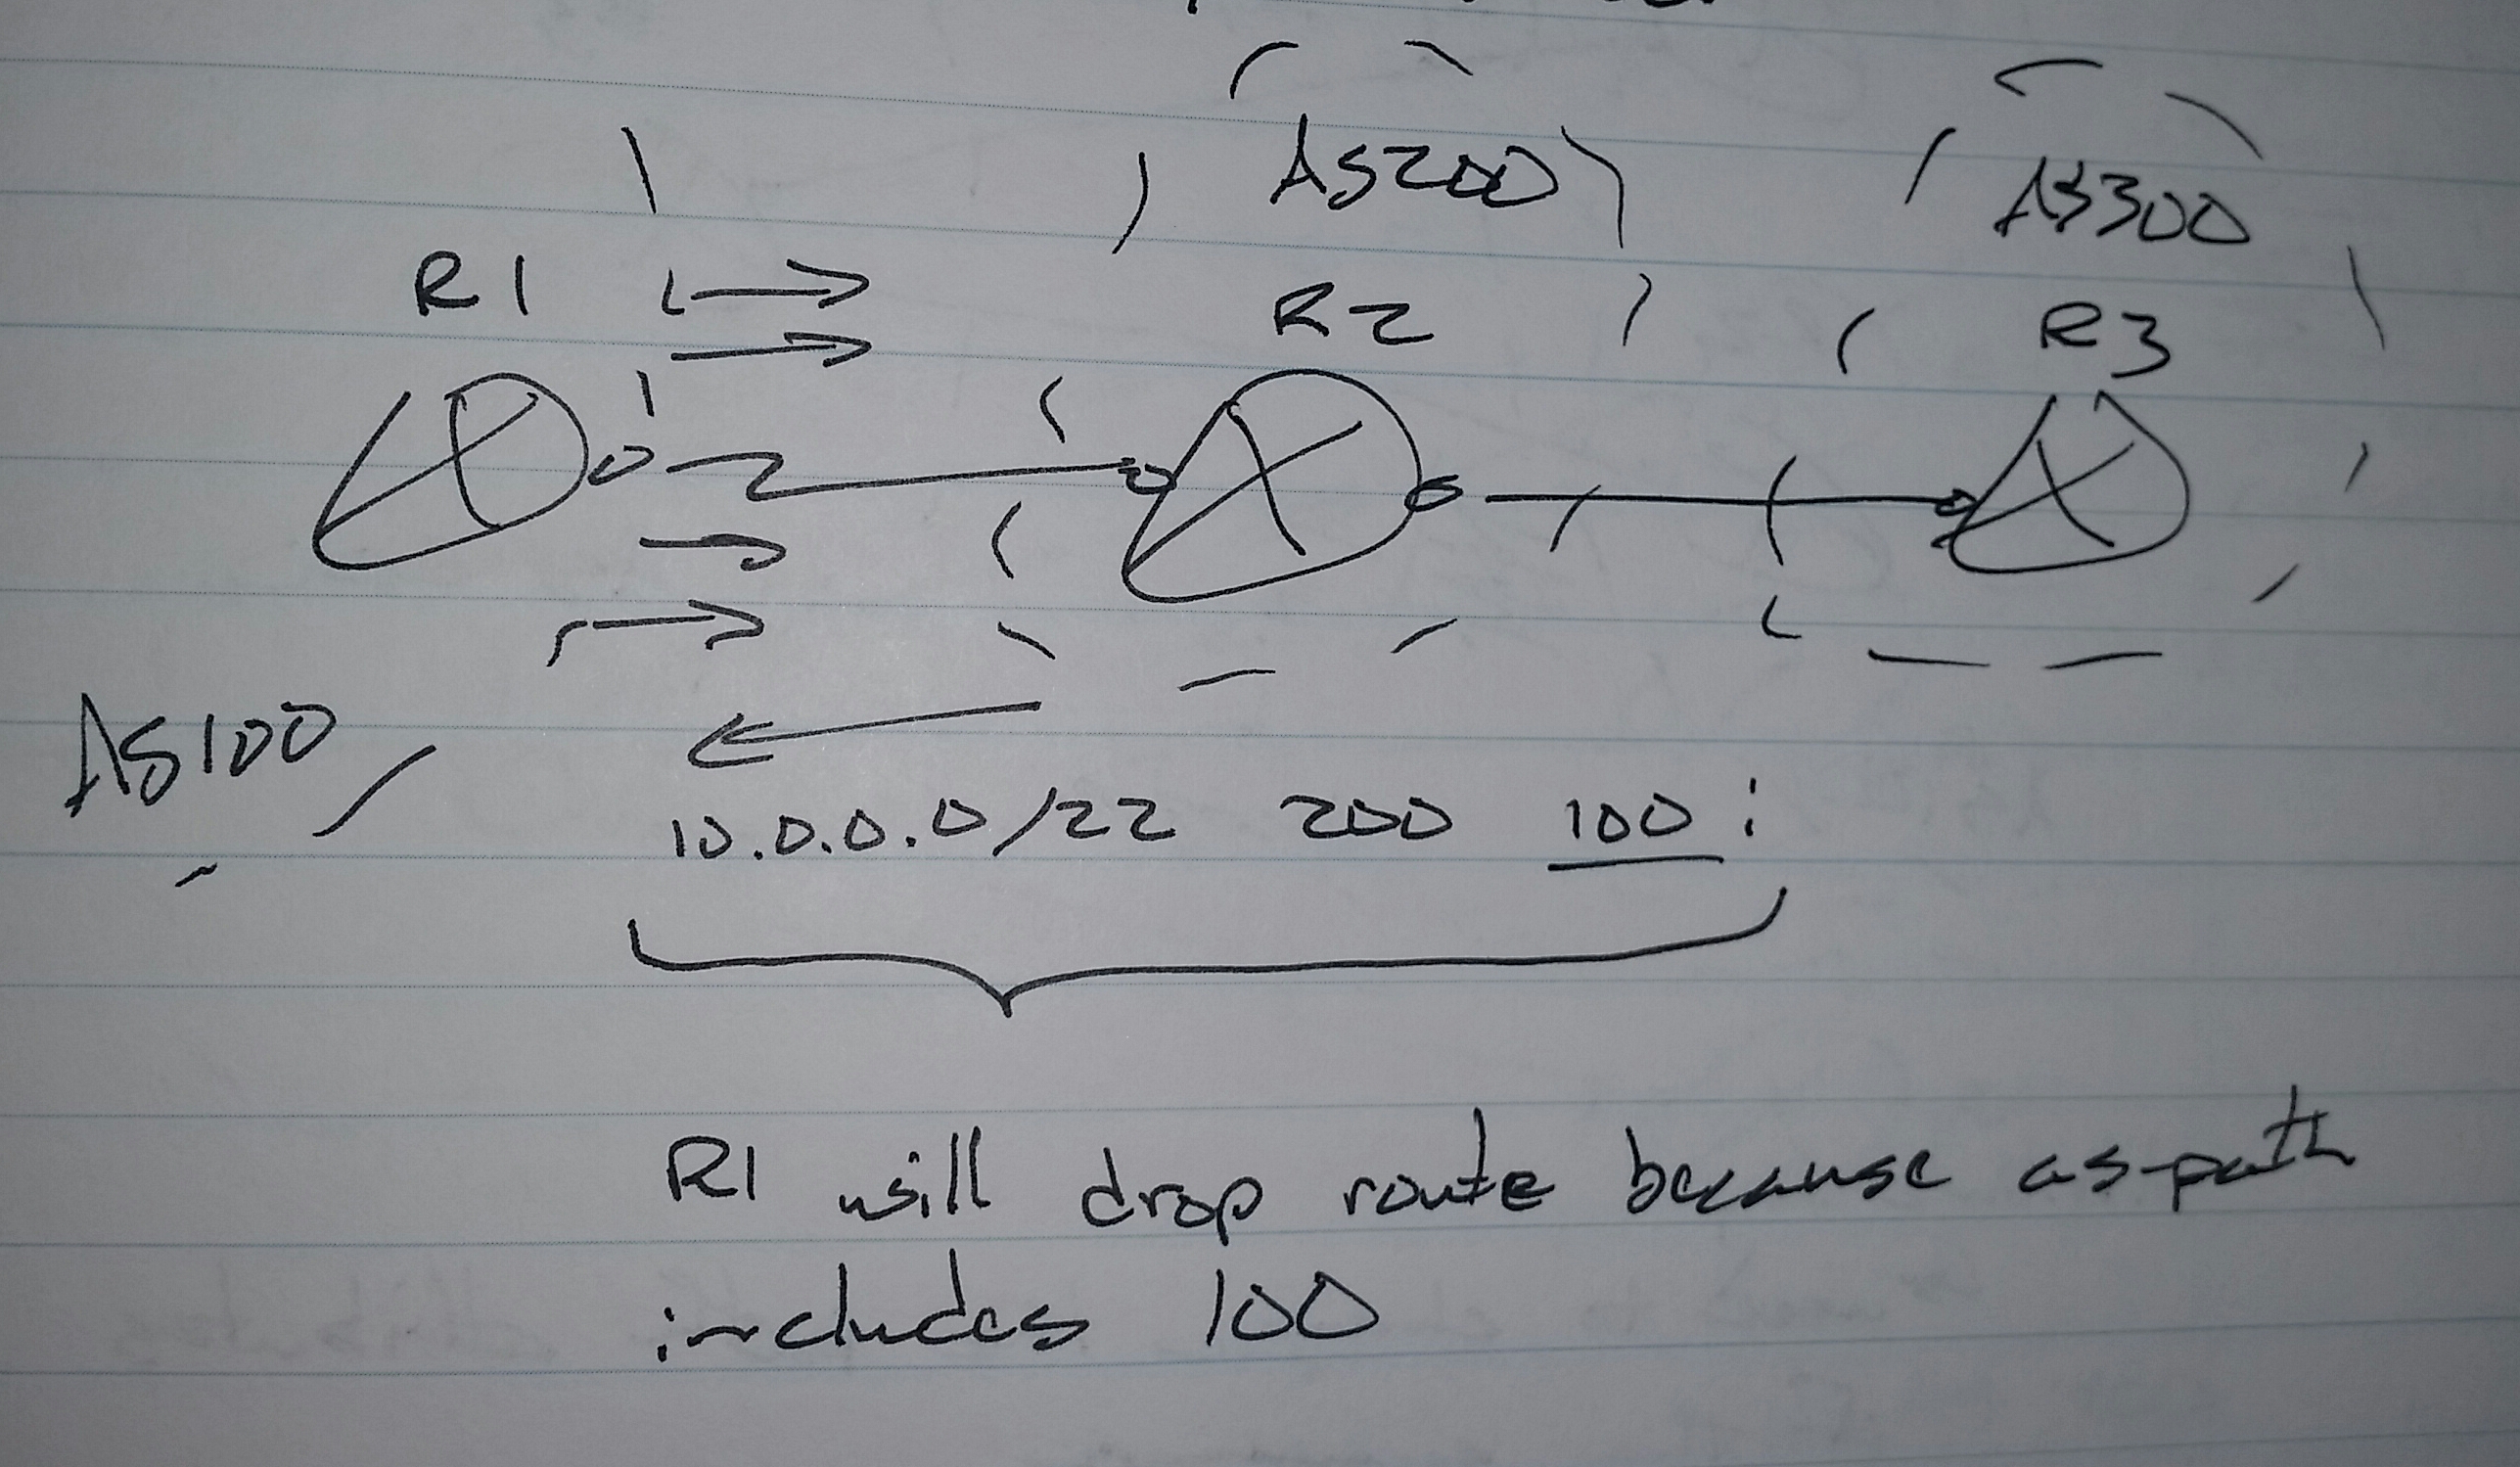 AS200
AS300
R1
R2
R3
AS100
10.0.0.0/22 200 100 i
R1 will drop route because as-path
includes 100